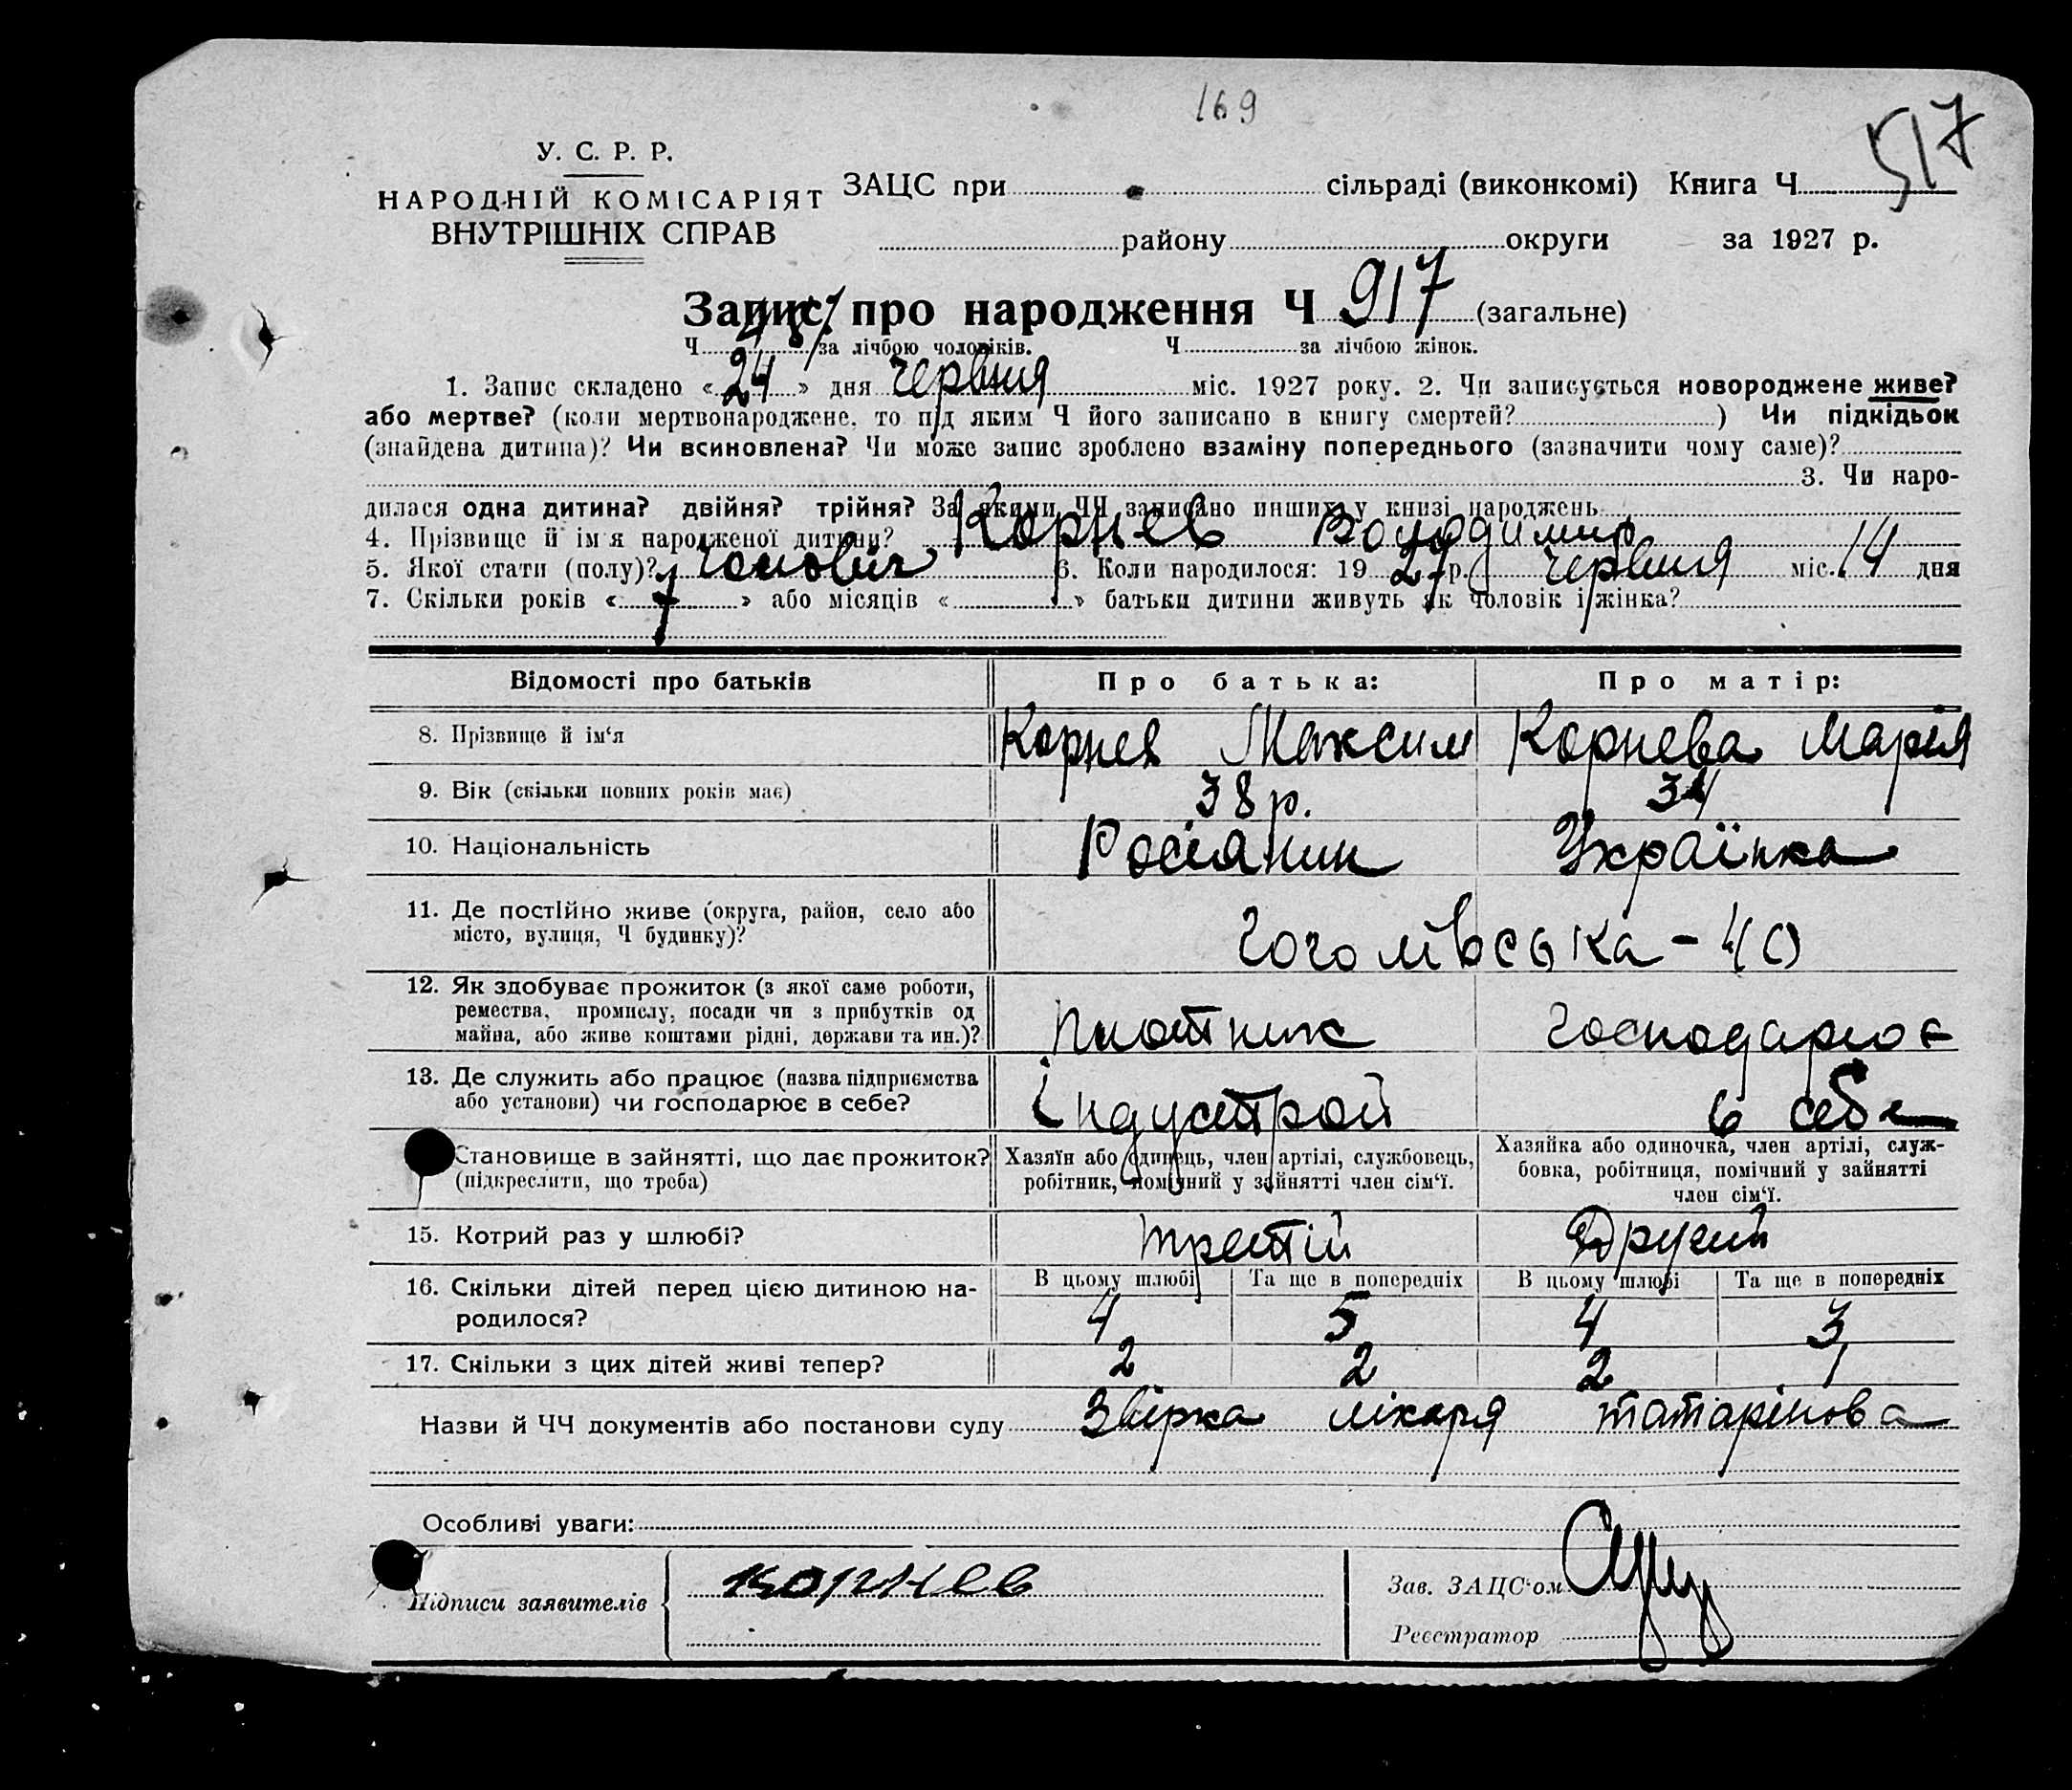 169
517
У. С. Р. Р.
НАРОДНІЙ КОМІСАРІЯТ
ВНУТРІШНІХ СПРАВ
ЗАЦС при сільраді (виконкомі) Книга Ч
району округи за 1927 р.
Запис про народження Ч 917 (загальне)
Ч за лічбою чоловіків. Ч за лічбою жінок.
1. Запис складено « 24 » дня червня міс. 1927 року. 2. Чи записується новороджене живе?
або мертве? (коли мертвонароджене, то під яким Ч його записано в книгу смертей? ) Чи підкідьок
(знайдена дитина)? Чи всиновлена? Чи може запис зроблено взаміну попереднього (зазначити чому саме)?
3. Чи наро-
дилася одна дитина? двійня? трійня? За якими ЧЧ записано инших у книзі народжень
4. Прізвище й ім'я народженої дитини? Корнев Володимир
5. Якої статі (полу)? чоловіч 6. Коли народилося: 19 27 р. червня міс. 14 дня
7. Скільки років « 7 » або місяців « » батьки дитини живуть як чоловік і жінка?
Відомості про батьків Про батька: Про матір:
8. Прізвище й ім'я Корнев Максим Корнева Марія
9. Вік (скільки повних років має) 38 р. 34
10. Національність Росіянин Українка
11. Де постійно живе (округа, район, село або
місто, вулиця, Ч будинку)? Гоголівська - 40
12. Як здобуває прожиток (з якої саме роботи,
ремества, промислу, посади чи з прибутків од
майна, або живе коштами рідні, держави та ин.)? плотник господарює
13. Де служить або працює (назва підприємства
або установи) чи господарює в себе? Індустрой в себе
Становище в зайнятті, що дає прожиток?
(підкреслити, що треба)
Хазяїн або одинець, член артілі, службовець,
робітник, помічний у зайнятті член сім'ї.
Хазяйка або одиночка, член артілі, служ-
бовка, робітниця, помічний у зайнятті
член сім'ї.
15. Котрий раз у шлюбі? третій Другий
16. Скільки дітей перед цією дитиною на-
родилося?
В цьому шлюбі Та ще в попередніх В цьому шлюбі Та ще в попередніх
4 5 4 3
17. Скільки з цих дітей живі тепер? 2 2 2 1
Назви й ЧЧ документів або постанови суду Звірка лікаря татарінова
Особливі уваги:
Підписи заявителів Корнев
Зав. ЗАЦС'ом
Реєстратор